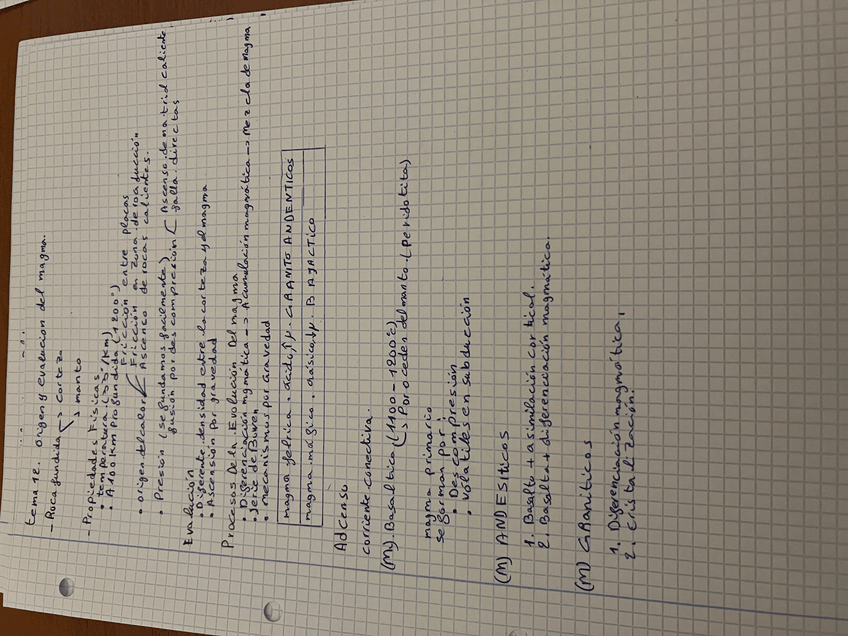 tema 12. origen y evaluacion del magma.
- Roca fundida → corteza
→ manto
- Propiedades Físicas
• temperatura (30°/Km)
• A 100 km profundida (1200°)
• origen del calor Fricción entre placas
Fricción en zona de roaducción
Ascenco de rocas calientes.
• Presión (se fundamos facilmente)
fusión por descompresión Ascenso de matrid caliente.
falla directas
Evalución
• Diferente densidad entre la corteza y el magma
• Ascensión por gravedad
Procesos De la Evolución Del magma
• Diferenciación mgmática → Acumulación magmática → Mezcla de magma
• Serie de Bowen
• Mecanismos por Gravedad
magma félrica. ácido, GRANITO ANDENTICOS
magma mágico. básico, BAJACTICO
Adcenso
corriente conectiva.
(M). Basaltica (1100-1200°c)
→ Poroceden del manto (Peridotita)
magma primario
se forman por:
• Descompresión
• volatiles en subducción
(M) ANDESíticos
1. Basalto + asimilación cortical.
2. Basalto + diferenciación magmática.
(M) GRaníticos
1. Diferenciación magmótica.
2. Cristalización.